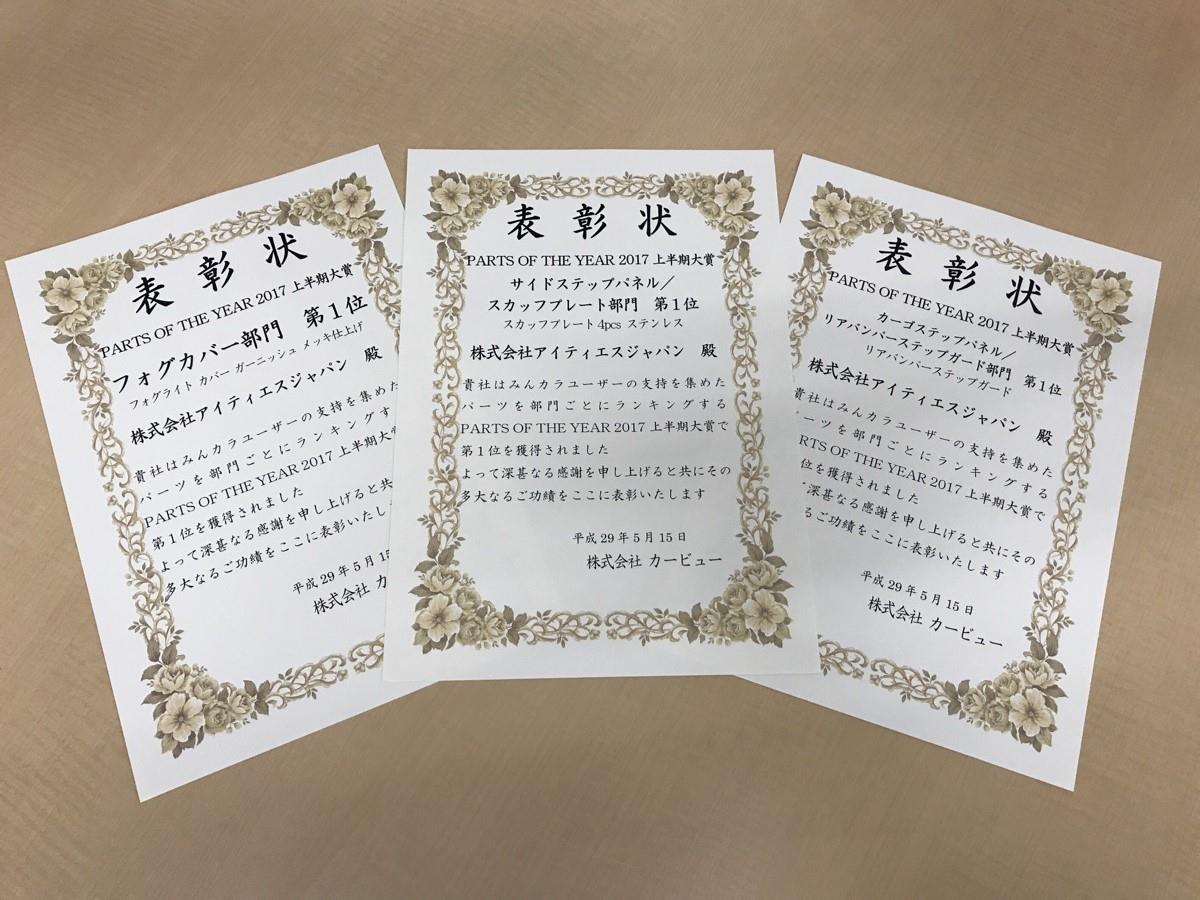 表彰状
PARTS OF THE YEAR 2017 上半期大賞
フォグカバー部門 第1位
フォグライト カバー ガーニッシュ メッキ仕上げ
株式会社アイティエスジャパン 殿
貴社はみんカラユーザーの支持を集めた
パーツを部門ごとにランキングす
PARTS OF THE YEAR 2017 上半期大賞
第1位を獲得されました
よって深甚なる感謝を申し上げると共
多大なるご功績をここに表彰いたし
平成29年5月15
株式会社 カ
表彰状
PARTS OF THE YEAR 2017 上半期大賞
サイドステップパネル／
スカッフプレート部門 第1位
スカッフプレート 4pcs ステンレス
株式会社アイティエスジャパン 殿
貴社はみんカラユーザーの支持を集めた
パーツを部門ごとにランキングする
PARTS OF THE YEAR 2017 上半期大賞で
第1位を獲得されました
よって深甚なる感謝を申し上げると共にその
多大なるご功績をここに表彰いたします
平成29年5月15日
株式会社 カービュー
表彰状
PARTS OF THE YEAR 2017 上半期大賞
カーゴステップパネル／
リアバンパーステップガード部門 第1位
リアバンパーステップガード
株式会社アイティエスジャパン 殿
貴社はみんカラユーザーの支持を集めた
ーツを部門ごとにランキングする
RTS OF THE YEAR 2017 上半期大賞で
位を獲得されました
深甚なる感謝を申し上げると共にその
るご功績をここに表彰いたします
平成29年5月15日
株式会社 カービュー